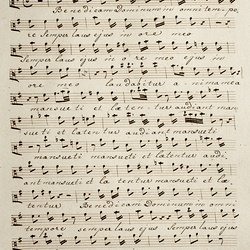 Benedicam Dominum in omni tempo,
re Semper laus ejus in ore meo
Semper laus ejus in o re meo ejus in
ore meo laudabitur a nima mea
mansueti et la ten tur audiant man,
sueti et latentur audiant mansueti
mansueti mansueti et latentur audi,
ant mansueti et la tentur mansueti et la,
tentur Benedicam Dominum in omni
tempore semper laus ejus Semper laus